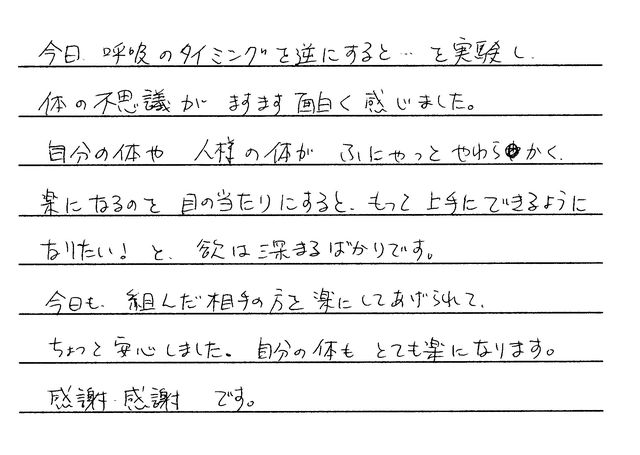 今日、呼吸のタイミングを逆にすると…を実験し、
体の不思議が ますます面白く感じました。
自分の体や 人様の体が ふにゃっと やわらかく、
楽になるのを 目の当たりにすると、もっと上手にできるように
なりたい！と、欲は深まるばかりです。
今日も、組んだ相手の方を楽にしてあげられて、
ちょっと安心しました。自分の体も とても楽になります。
感謝・感謝 です。